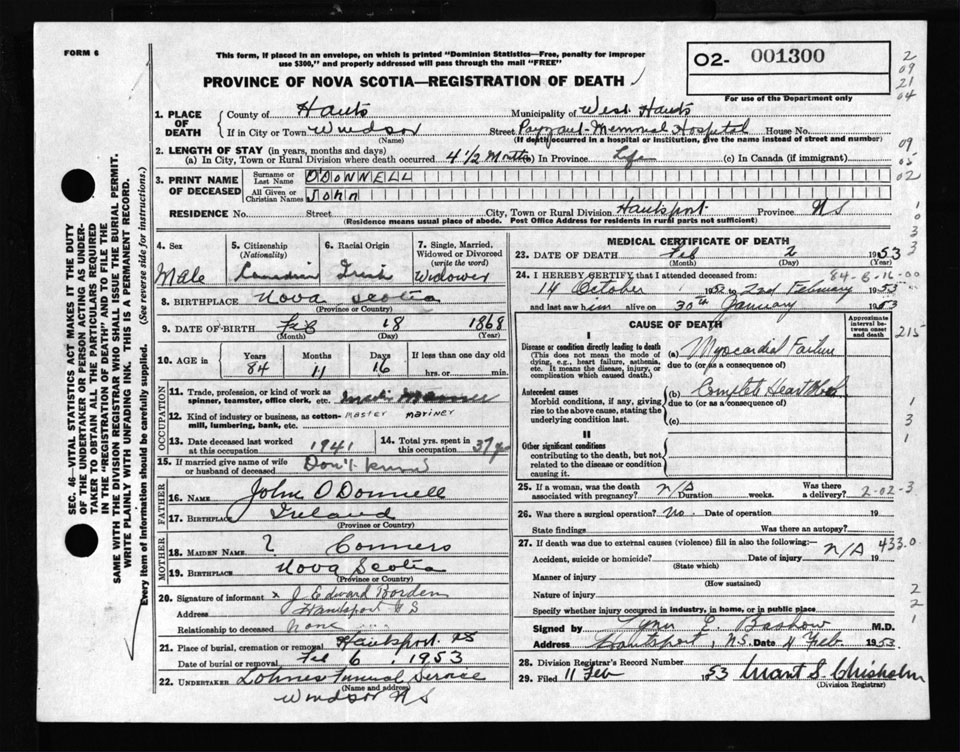 FORM 6
This form, if placed in an envelope, on which is printed "Dominion Statistics—Free, penalty for improper
use $300," and properly addressed will pass through the mail "FREE"
PROVINCE OF NOVA SCOTIA—REGISTRATION OF DEATH
O2- 001300
For use of the Department only
2
09
21
04
1. PLACE OF DEATH
County of Hants Municipality of West Hants
If in City or Town Windsor Street Payzant Memorial Hospital House No.
(Name) (If death occurred in a hospital or institution, give the name instead of street and number)
2. LENGTH OF STAY (in years, months and days)
(a) In City, Town or Rural Division where death occurred 4 1/2 Months (b) In Province Life (c) In Canada (if immigrant)
09
05
02
3. PRINT NAME OF DECEASED
Surname or Last Name O'DONNELL
All Given or Christian Names John
RESIDENCE No. Street City, Town or Rural Division Hantsport Province NS
(Residence means usual place of abode. Post Office Address for residents in rural parts not sufficient)
SEC. 46—VITAL STATISTICS ACT MAKES IT THE DUTY
OF THE UNDERTAKER OR PERSON ACTING AS UNDER-
TAKER TO OBTAIN ALL THE PARTICULARS REQUIRED
IN THE "REGISTRATION OF DEATH" AND TO FILE THE
SAME WITH THE DIVISION REGISTRAR WHO SHALL ISSUE THE BURIAL PERMIT.
WRITE PLAINLY WITH UNFADING INK. THIS IS A PERMANENT RECORD.
Every item of information should be carefully supplied. (See reverse side for instructions.)
4. Sex
Male
5. Citizenship
(Nationality)
Canadian
6. Racial Origin
Irish
7. Single, Married,
Widowed or Divorced
(write the word)
Widower
8. BIRTHPLACE Nova Scotia
(Province or Country)
9. DATE OF BIRTH Feb 18 1868
(Month) (Day) (Year)
10. AGE in Years Months Days If less than one day old
84 11 16 hrs. or min.
OCCUPATION
11. Trade, profession, or kind of work as
spinner, teamster, office clerk, etc.
12. Kind of industry or business, as cotton-
mill, lumbering, bank, etc. master mariner
13. Date deceased last worked
at this occupation 1941
14. Total yrs. spent in
this occupation 37
15. If married give name of wife
or husband of deceased Don't know
FATHER
16. NAME John O Donnell
17. BIRTHPLACE Ireland
(Province or Country)
MOTHER
18. MAIDEN NAME ? Conners
19. BIRTHPLACE Nova Scotia
(Province or Country)
20. Signature of informant x J. Edward Borden
Address Hantsport N S
Relationship to deceased None
21. Place of burial, cremation or removal Hantsport NS
Date of burial or removal Feb 6, 1953
22. UNDERTAKER Lohnes Funeral Service
(Name and address)
Windsor N S
MEDICAL CERTIFICATE OF DEATH
23. DATE OF DEATH Feb 2 1953
(Month) (Day) (Year)
24. I HEREBY CERTIFY that I attended deceased from: 84-6-16-00
14 October 1952 to 2nd February 1953
and last saw him alive on 30th January 1953
CAUSE OF DEATH
Approximate
interval be-
tween onset
and death
215
I
Disease or condition directly leading to death
(This does not mean the mode of
dying, e.g., heart failure, asthenia,
etc. It means the disease, injury, or
complication which caused death.)
(a) Myocardial Failure
due to (or as a consequence of)
Antecedent causes
Morbid conditions, if any, giving
rise to the above cause, stating the
underlying condition last.
(b) Complete Heart Block
due to (or as a consequence of)
(c)
II
Other significant conditions
contributing to the death, but not
related to the disease or condition
causing it.
1
3
1
25. If a woman, was the death
associated with pregnancy? N/A Duration weeks. Was there
a delivery? 2-02-3
26. Was there a surgical operation? No. Date of operation 19
State findings Was there an autopsy?
27. If death was due to external causes (violence) fill in also the following:— N/A 433.0
Accident, suicide or homicide? Date of injury 19
(State which)
Manner of injury
(How sustained)
Nature of injury
Specify whether injury occurred in industry, in home, or in public place
2
2
1
Signed by E. Bashow M.D.
Address Hantsport, N.S. Date 4 Feb 1953
28. Division Registrar's Record Number
29. Filed 11 Feb 1953 Grant S. Chisholm
(Division Registrar)